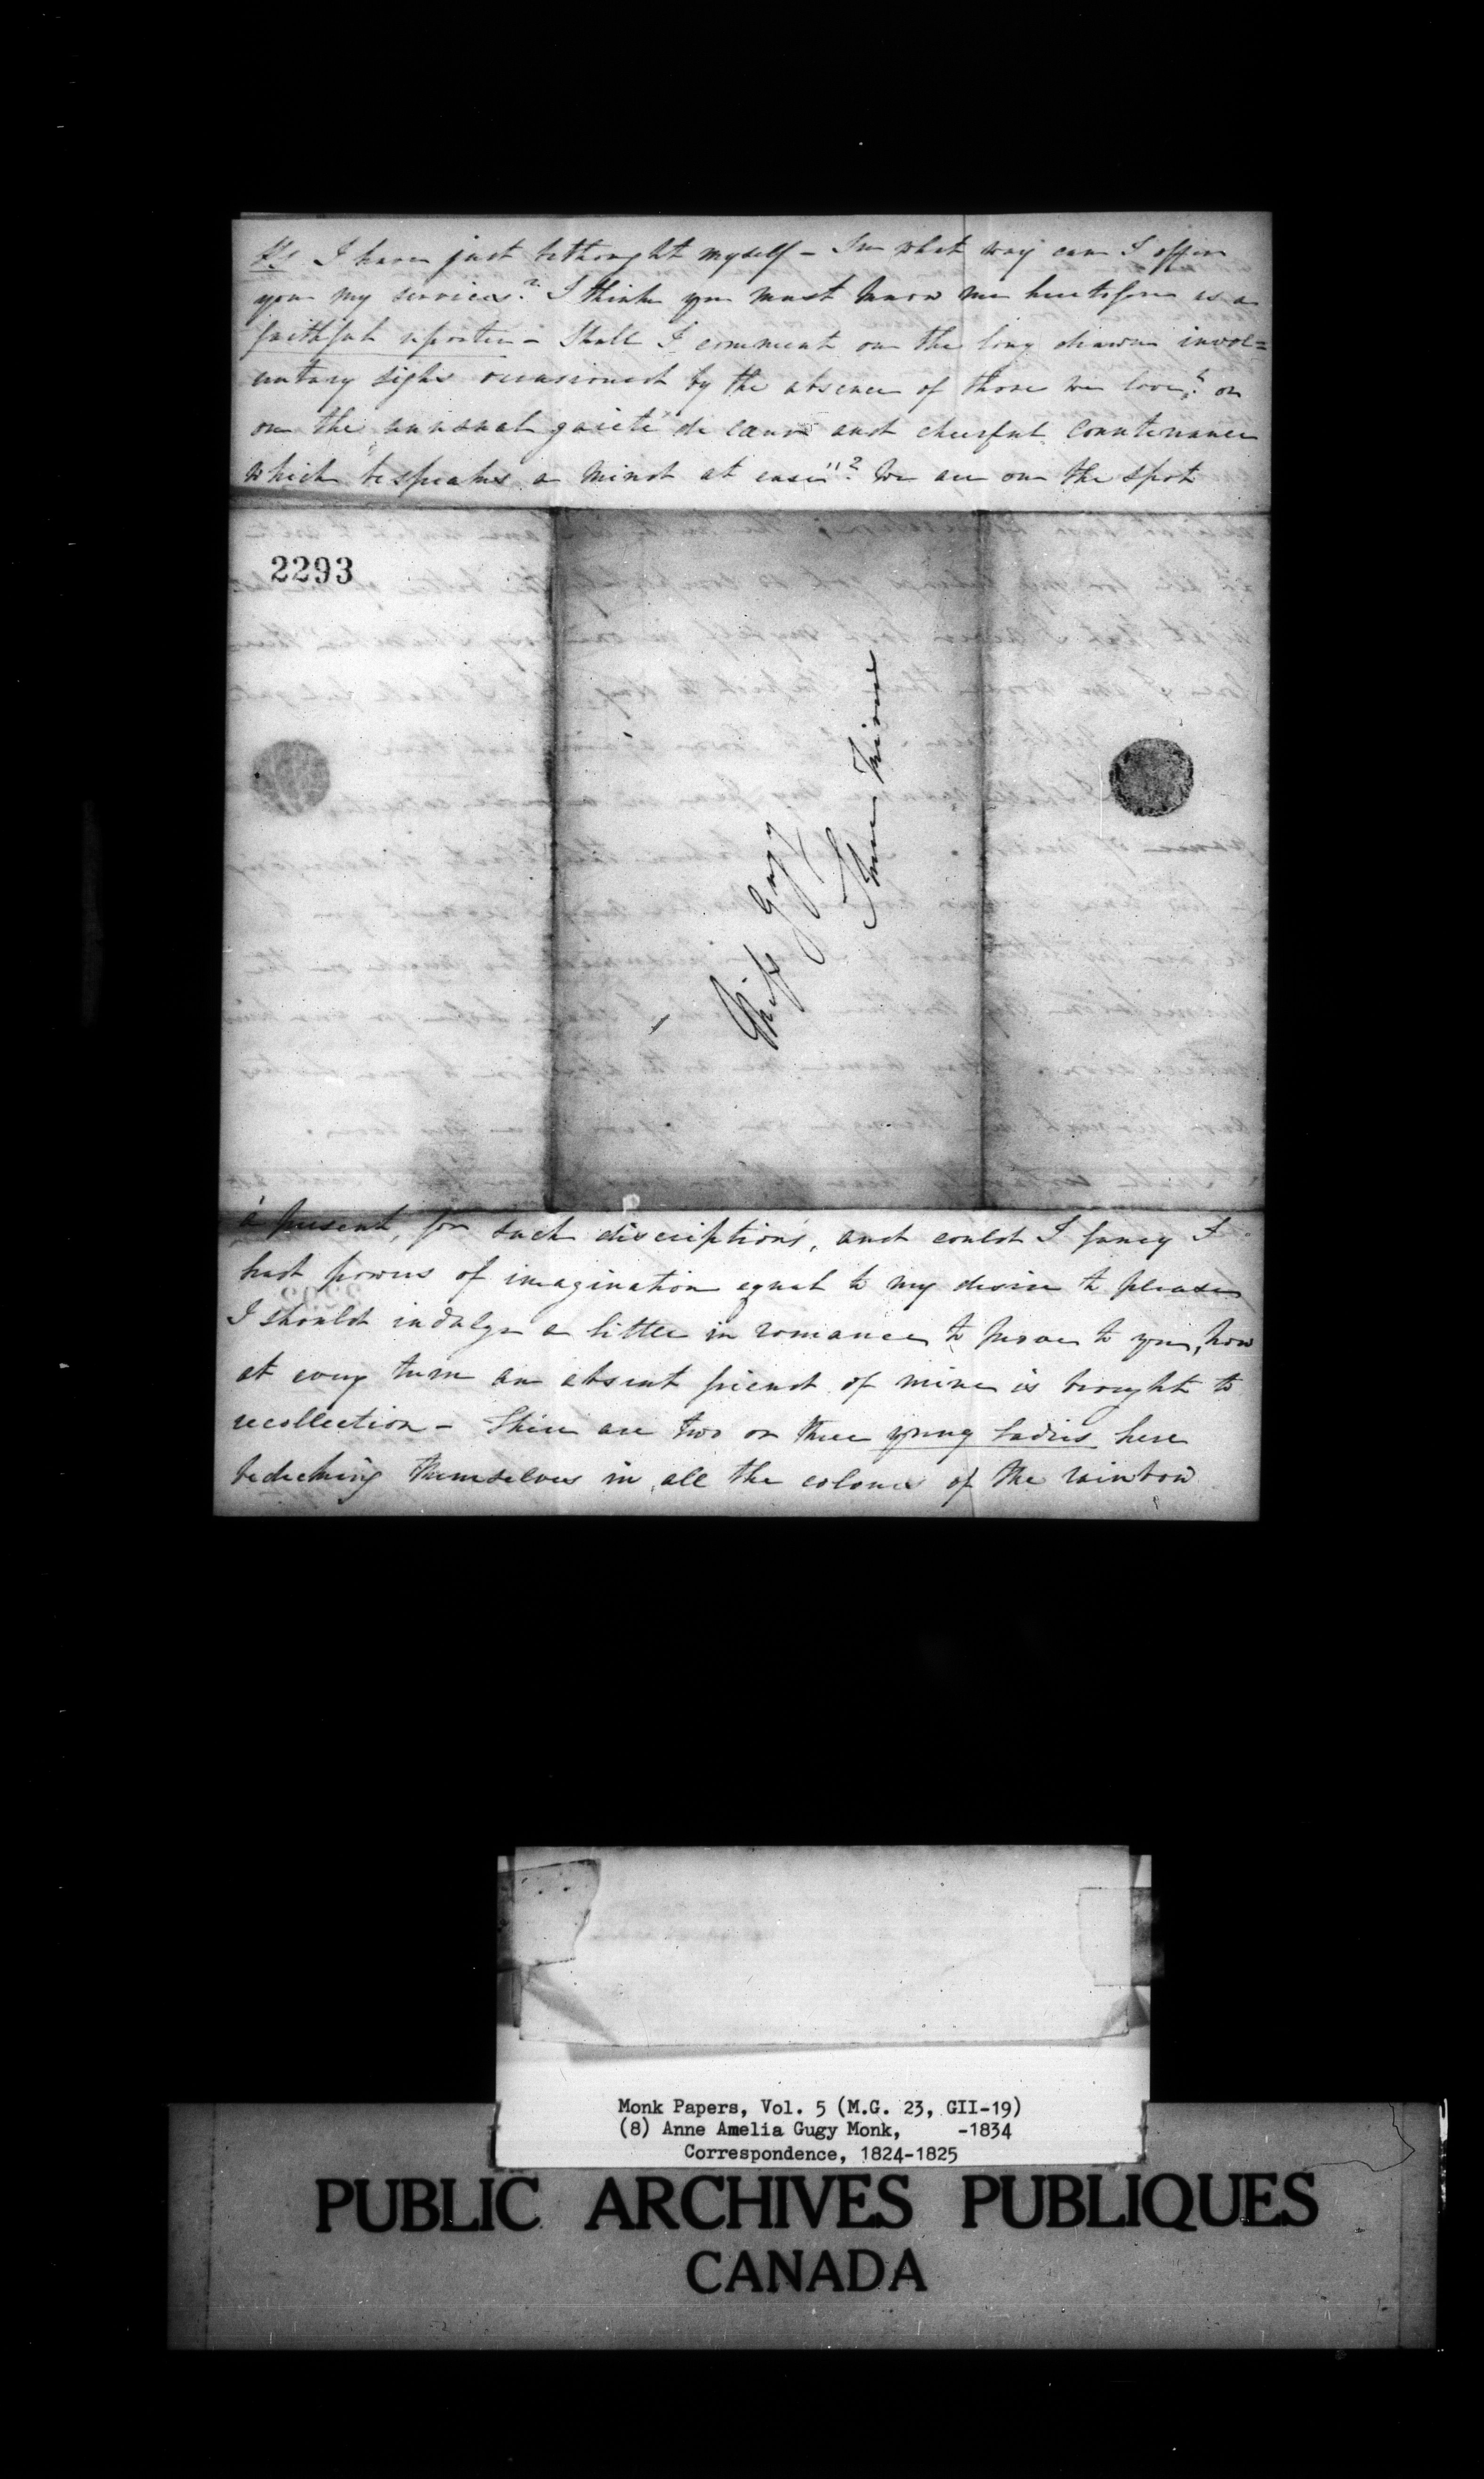 P.S. I have just bethought myself – In what way can I offer
you my services? I think you must know me heretofore as a
faithful reporter – Shall I comment on the long drawn invol=
untary sighs occasioned by the absence of those we love? or
on the unusual "gaieté de cœur and cheerful countenance
which bespeaks a mind at ease"? We are on the spot
2293
Miss Gugy
Three Rivers
à present, for such discriptions, and could I fancy I
had powers of imagination equal to my desire to please
I should indulge a little in romance to prove to you, how
at every turn an absent friend of mine is brought to
recollection – There are two or three young ladies here
bedecking themselves in all the colours of the rainbow
Monk Papers, Vol. 5 (M.G. 23, GII-19)
(8) Anne Amelia Gugy Monk, -1834
Correspondence, 1824-1825
PUBLIC ARCHIVES PUBLIQUES
CANADA